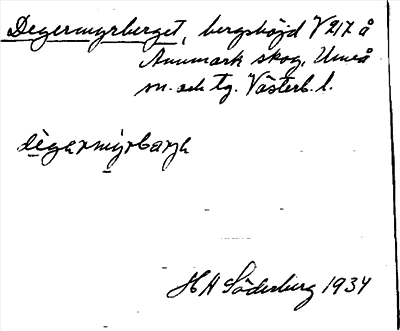 Degermyrberget, bergshöjd V 217 å
Anumark skog, Umeå
sn. och tg. Västerb. l.
H A Söderberg 1934